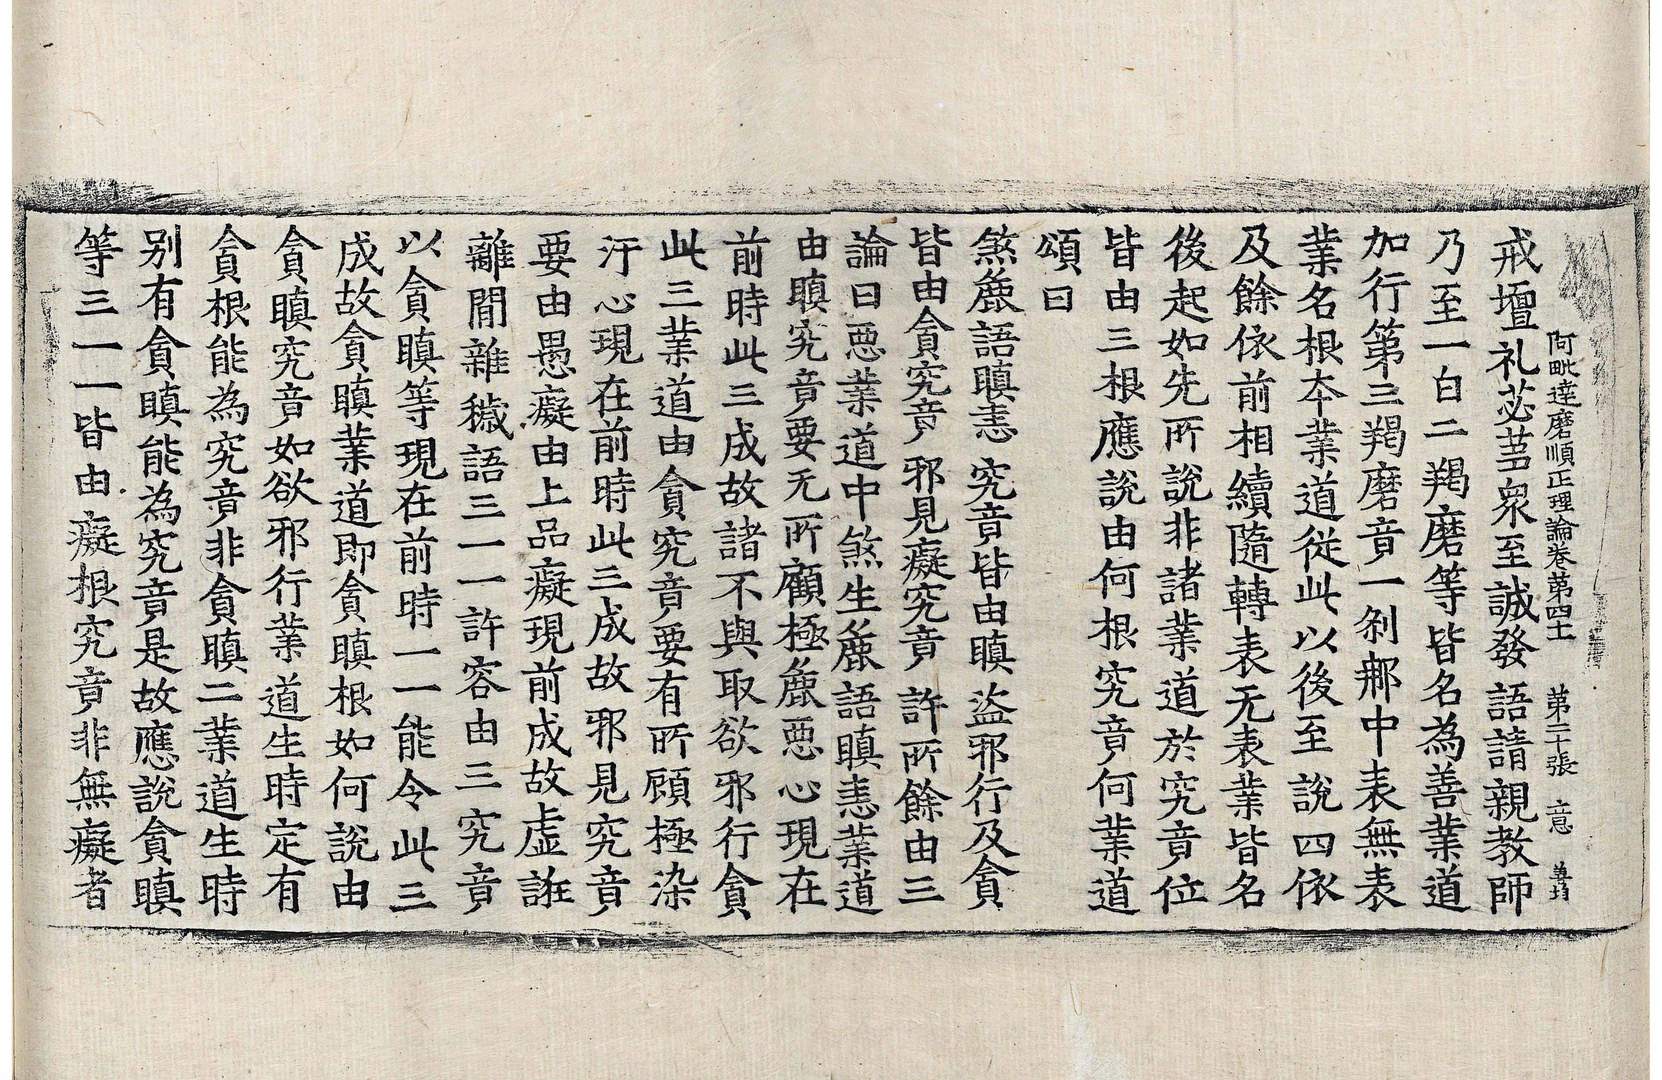 阿毗達磨順正理論卷第四十　第二十張　意　善均
戒壇礼苾芻衆至誠發語請親教師
乃至一白二羯磨等皆名為善業道
加行第三羯磨竟一剎那中表無表
業名根本業道從此以後至說四依
及餘依前相續隨轉表无表業皆名
後起如先所說非諸業道於究竟位
皆由三根應說由何根究竟何業道
頌曰
煞麁語瞋恚　究竟皆由瞋　盜邪行及貪
皆由貪究竟　邪見癡究竟　許所餘由三
論曰惡業道中煞生麁語瞋恚業道
由瞋究竟要无所顧極麁惡心現在
前時此三成故諸不與取欲邪行貪
此三業道由貪究竟要有所顧極染
汙心現在前時此三成故邪見究竟
要由愚癡由上品癡現前成故虛誑
離間雜穢語三一一許容由三究竟
以貪瞋等現在前時一一能令此三
成故貪瞋業道即貪瞋根如何說由
貪瞋究竟如欲邪行業道生時定有
貪根能為究竟非貪瞋二業道生時
別有貪瞋能為究竟是故應說貪瞋
等三一一皆由癡根究竟非無癡者